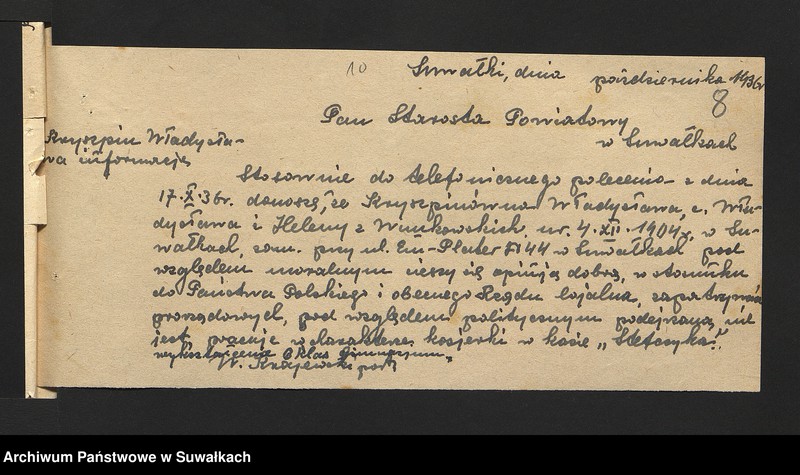 10
Suwałki, dnia października 1936r
8
Pan Starosta Powiatowy
w Suwałkach
Kryszpin Władysła-
wa informacje
Stosownie do telefonicznego polecenia z dnia
17.X.36r. donoszę, że Kryszpinówna Władysława, c. Wła-
dysława i Heleny z ur. 4.XII.1904r, w Su-
wałkach, zam. przy ul. Em-Plater 44 w Suwałkach pod
względem moralnym cieszy się opinją dobrą, w stosunku
do Państwa Polskiego i obecnego Rządu lojalna, zapatrywań
prorządowych, pod względem politycznym podejrzaną nie
jest, pracuje w charakterze kasjerki w kasie „Stefczyka".
wykształcenie 6 klas Gimnazjum
W. Krajewski post
Archiwum Państwowe w Suwałkach